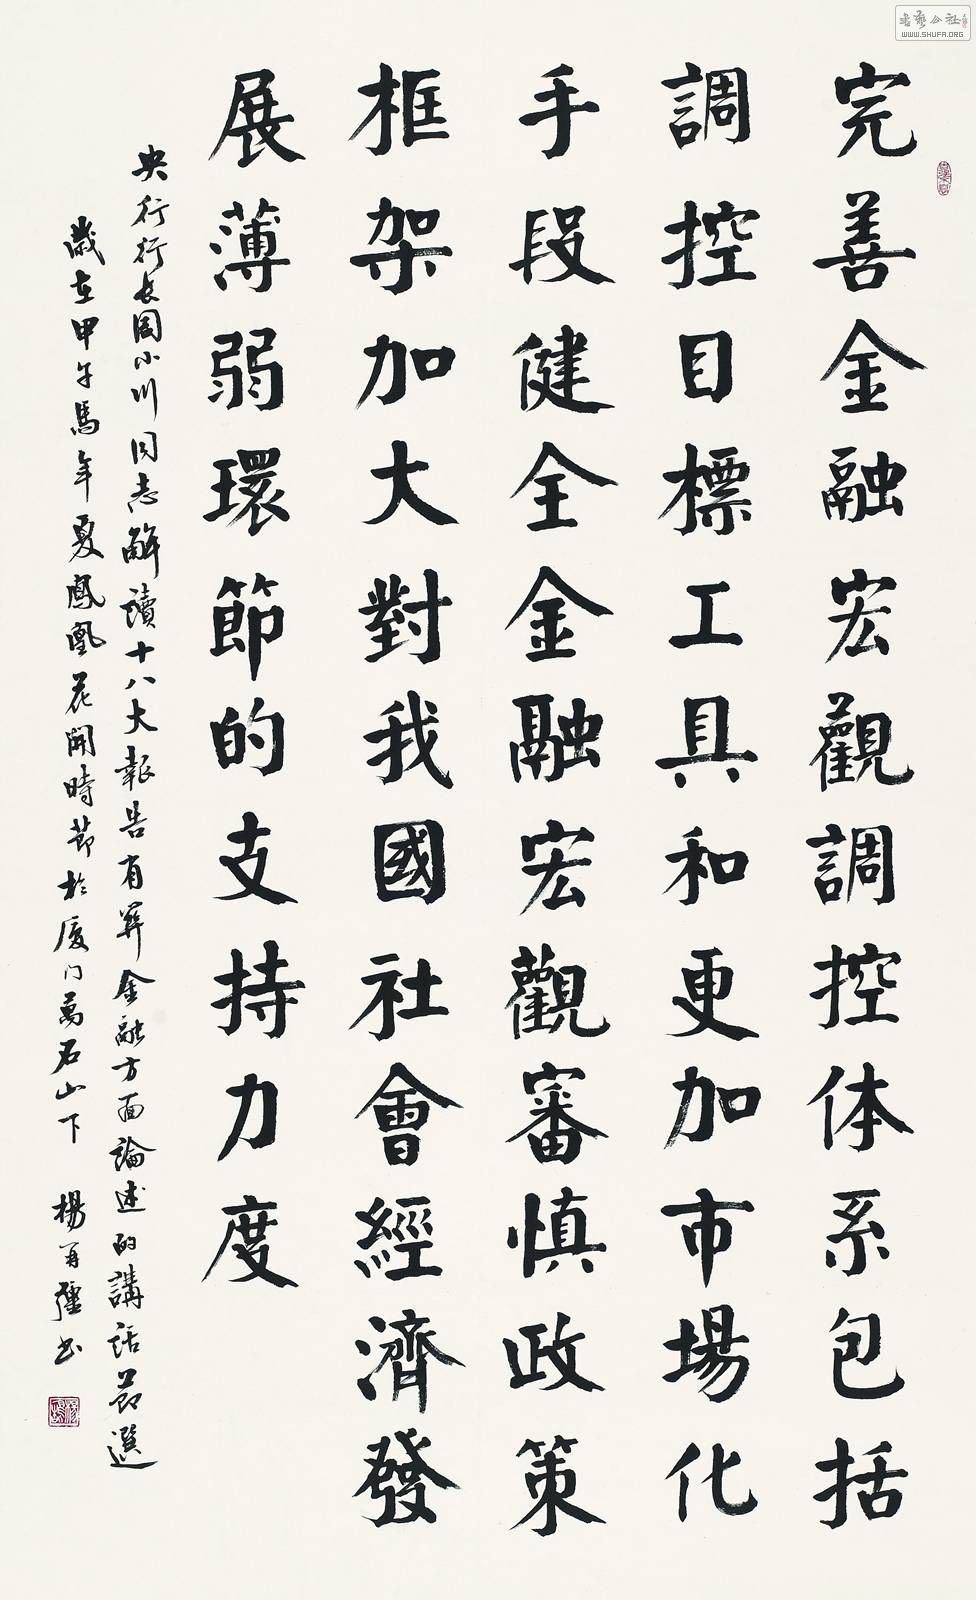 完善金融宏觀調控体系包括
調控目標工具和更加市場化
手段健全金融宏觀審慎政策
框架加大對我國社會經濟發
展薄弱環節的支持力度
央行行长周小川同志解讀十八大報告有關金融方面論述的講話節選
歲在甲午馬年夏鳳凰花開時節於廈门萬石山下 楊再疆书
书艺公社
WWW.SHUFA.ORG